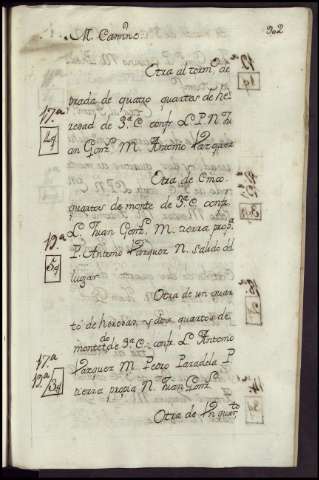 302
M. Camino.
Otra al torno, de
prada de quatro quartos de he
17.ª
redad de 3.ª C. confr. L. P. N. Ju
4q
an Gonz.z M. Antonio Vazquez
Otra de Cinco
quartos de monte de 3.ª C. confr.
19.ª
L. Juan Gonz.z M. tierra prop.ª
P. Antonio Vazquez N. salido del
5q
lugar
Otra de un quar
to de heredad, y dos quartos de
monte de 3.ª C. confr. L. Antonio
17.ª
Vazquez M. Pedro Paradela P.
19.ª
3q
tierra propia N. Juan Gonz.z
Otra de Un quart.